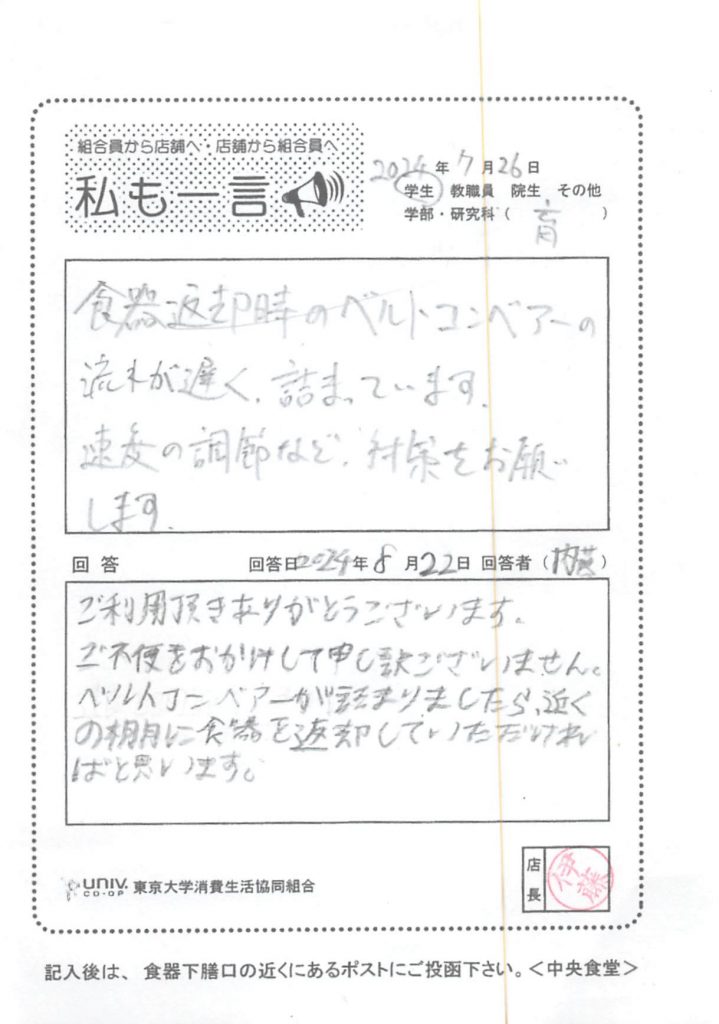 組合員から店舗へ・店舗から組合員へ
私も一言
2024年7月26日
学生 教職員 院生 その他
学部・研究科（育）
食器返却時のベルトコンベアーの
流れが遅く、詰まっています。
速度の調節など、対策をお願い
します。
回答 回答日2024年8月22日 回答者（内藤）
ご利用頂きありがとうございます。
ご不便をおかけして申し訳ございません。
ベルトコンベアーが詰まりましたら、近く
の棚に食器を返却していただけれ
ばと思います。
UNIV.
CO-OP
東京大学消費生活協同組合
店長
伊藤
記入後は、食器下膳口の近くにあるポストにご投函下さい。＜中央食堂＞